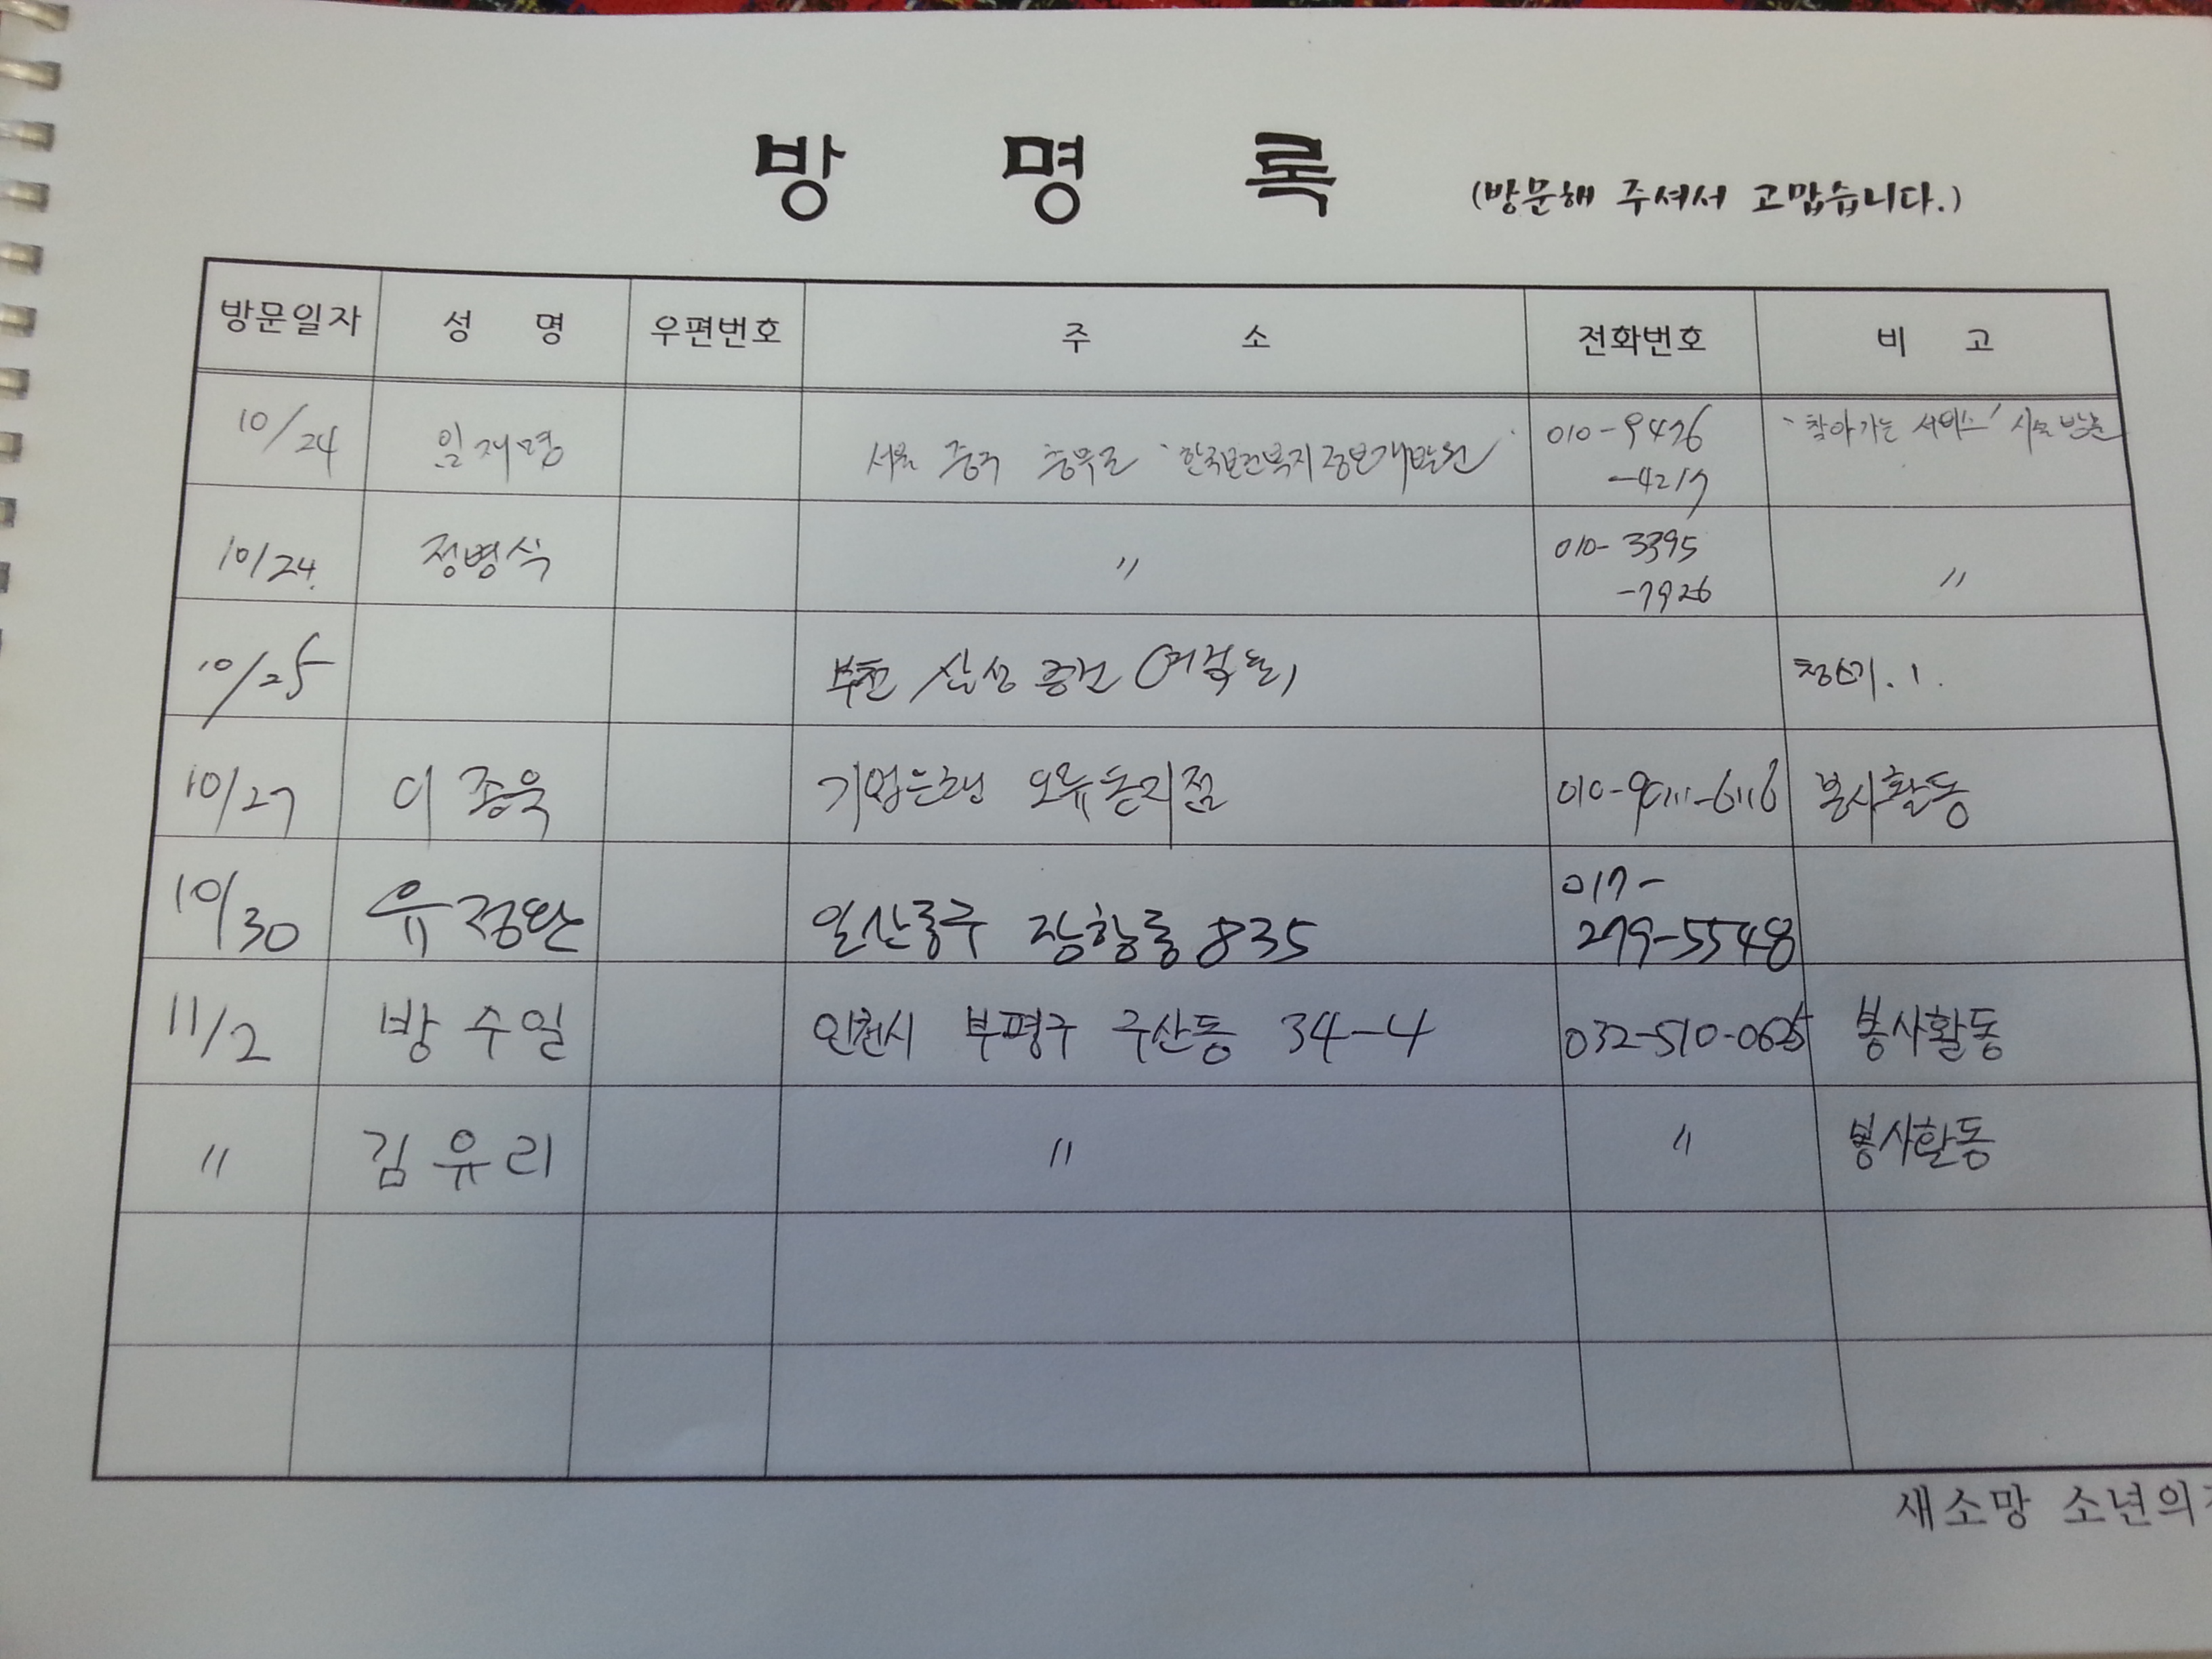 방 명 록 (방문해 주셔서 고맙습니다.)
방문일자 성 명 우편번호 주 소 전화번호 비 고
10/24 임재명 서울 중구 충무로 '한국보건복지정보개발원' 010-9426 '찾아가는 서비스'
-4217
10/24. 정병식 〃 010-3395 〃
-7926
10/25 부천 삼성
10/27 이종욱 기업은행 오류동지점 봉사활동
10/30 유정완 일산동구 장항동 835 017-
279-5548
11/2 방수일 인천시 부평구 구산동 34-4 032-510-0625 봉사활동
〃 김유리 〃 〃 봉사활동
새소망 소년의